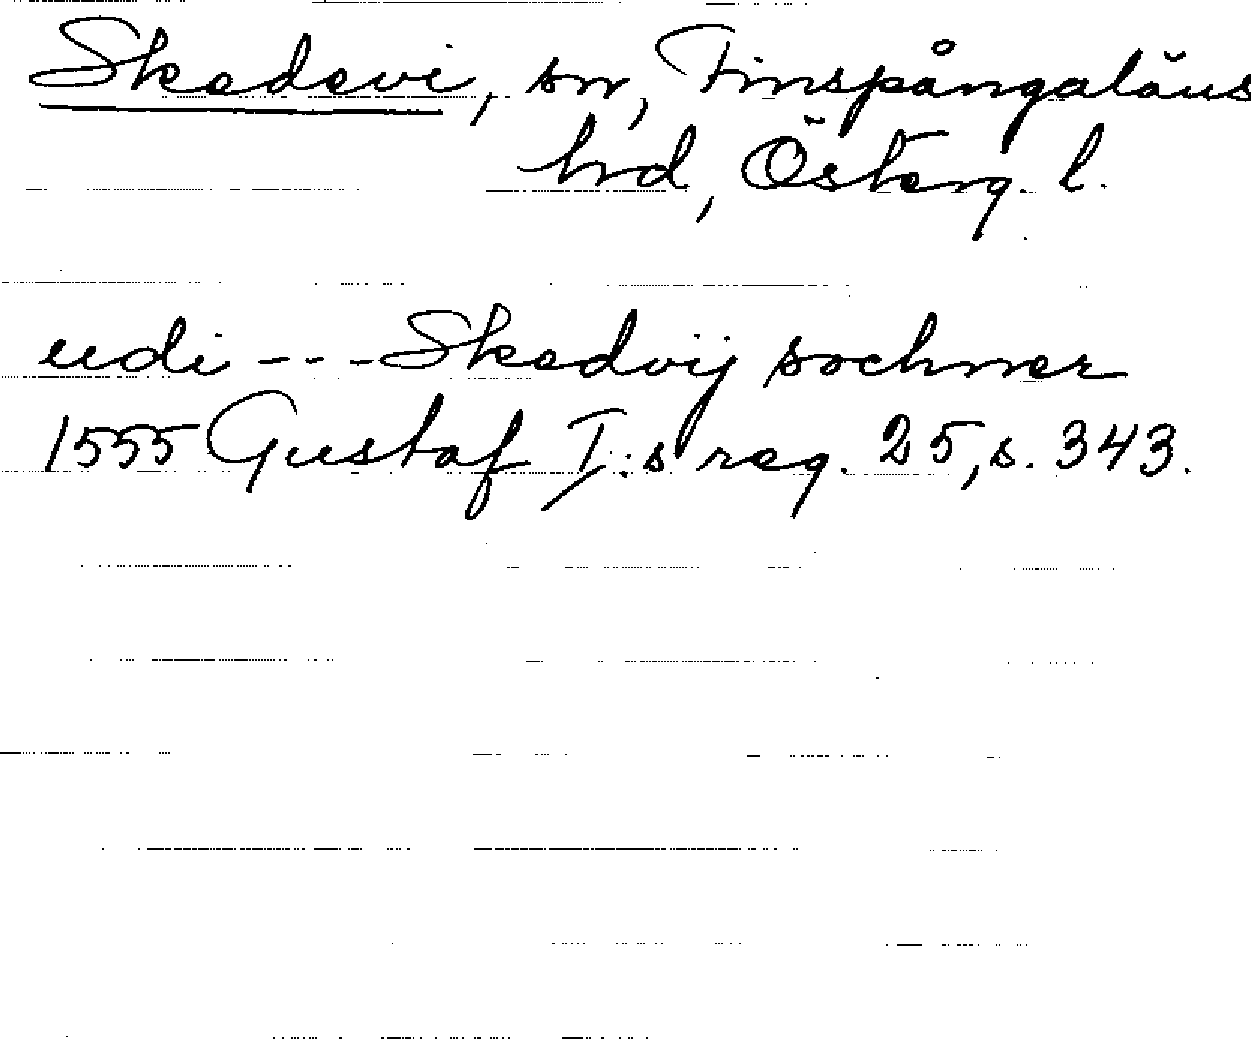 Skedevi, sn, Finspångaläns
hrd, Österg. l.
udi --- Skedvij sochner
1555 Gustaf I:s reg. 25, s. 343.